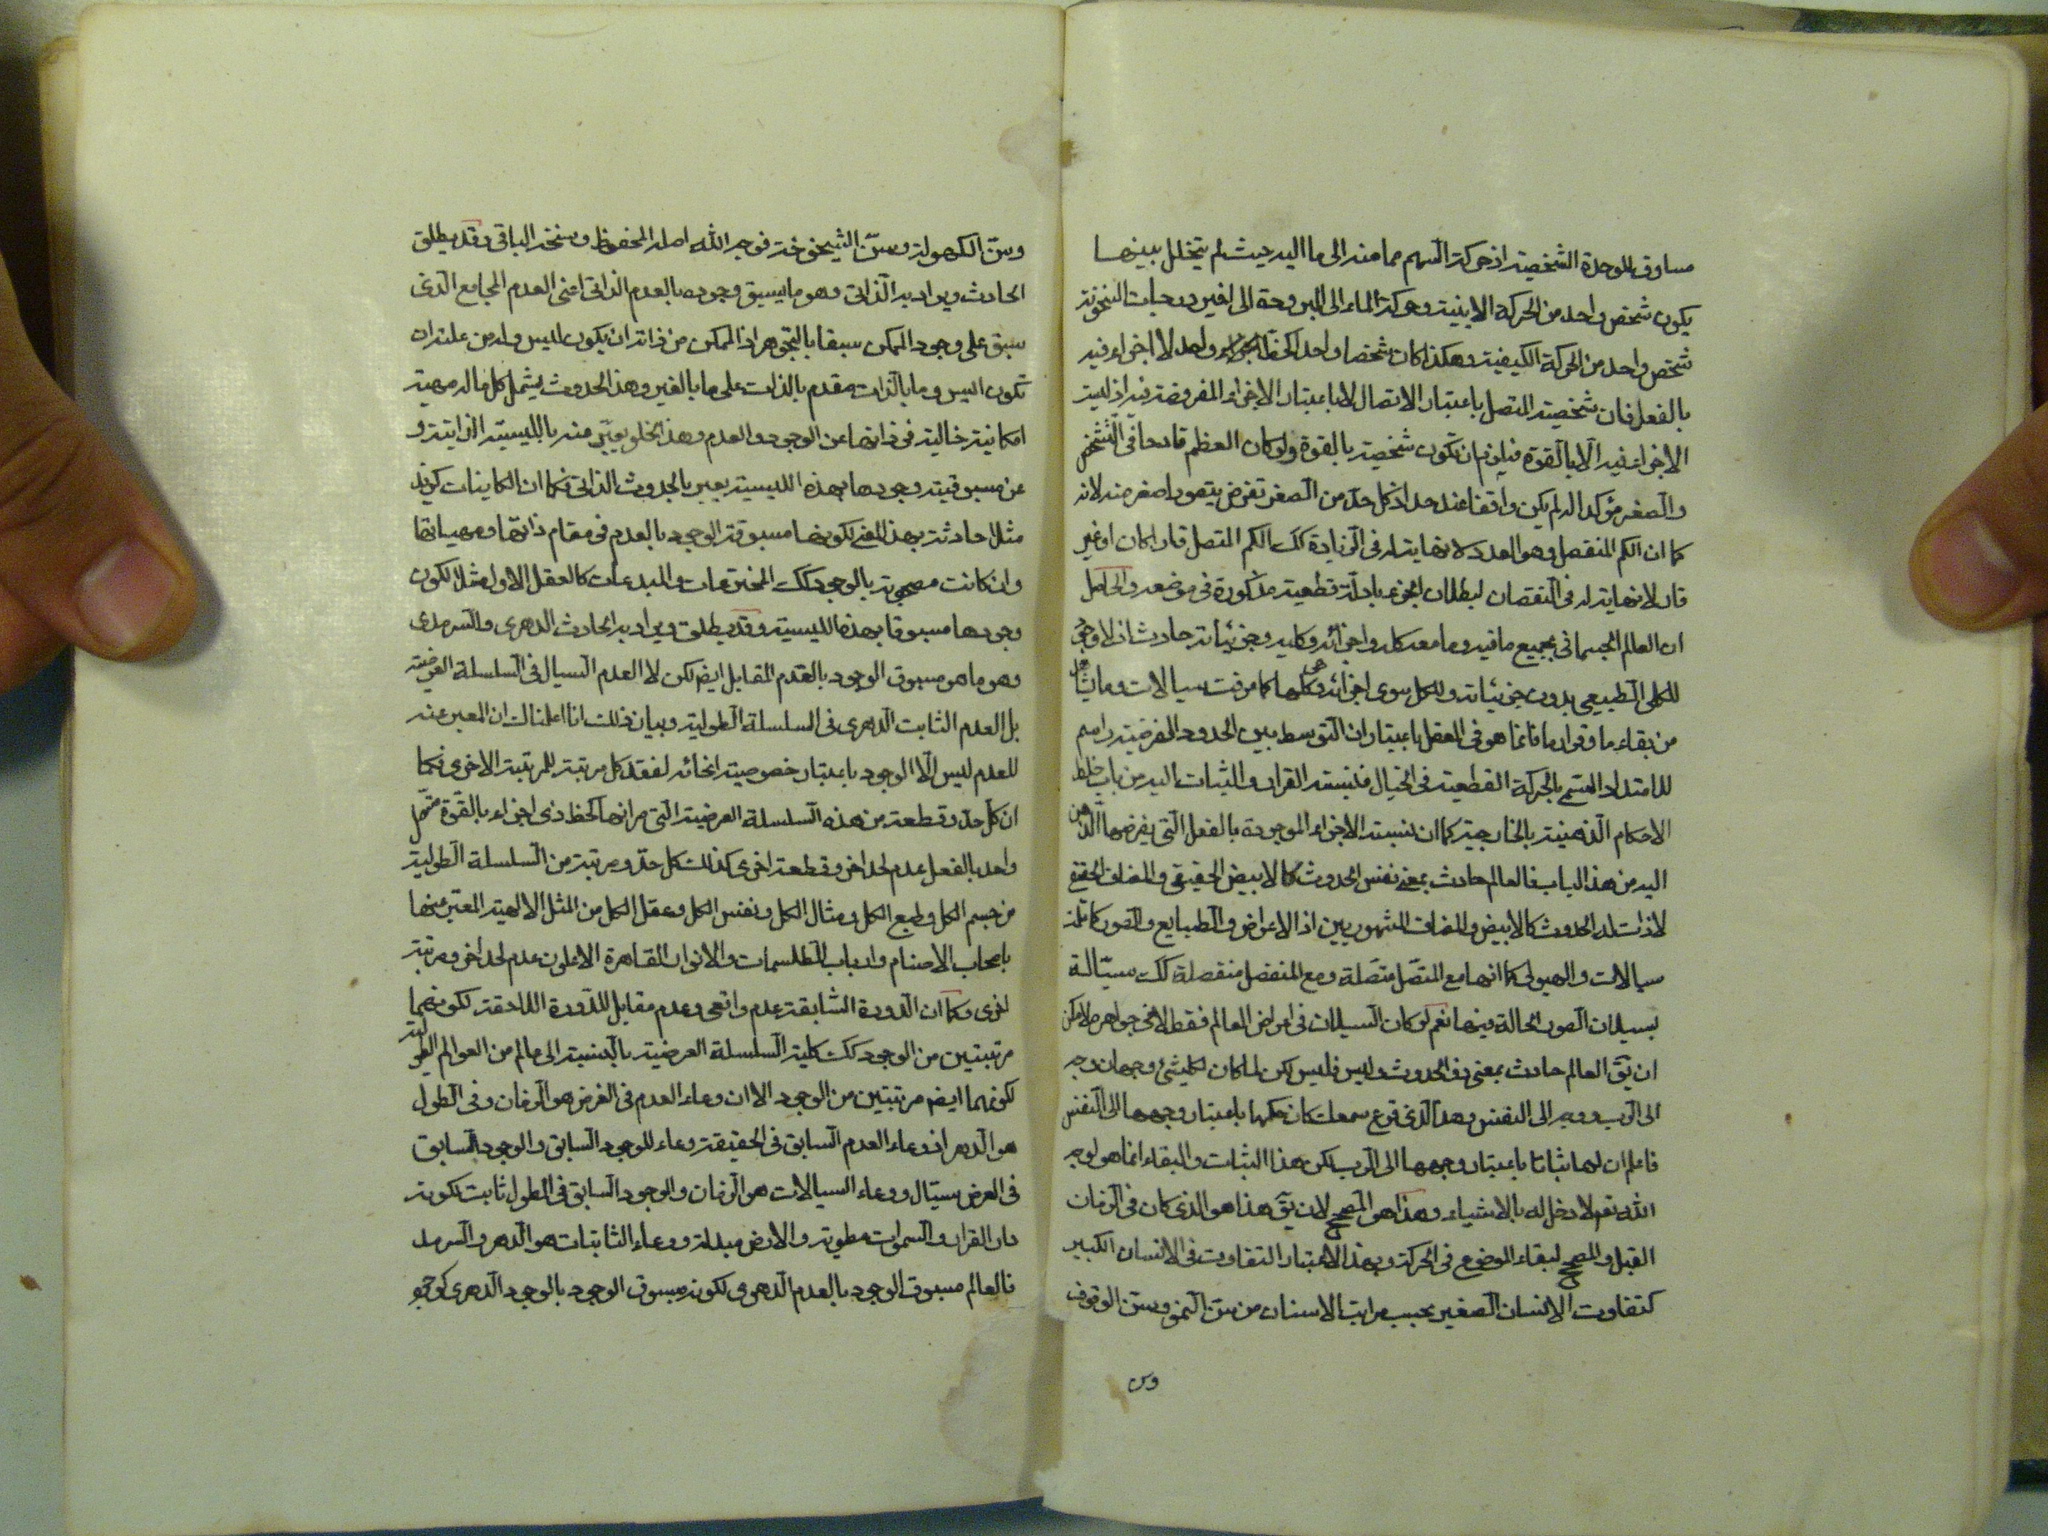 مساوق للوحدة الشخصية اذ حركة السهم مما منه الى ما اليه حيث لم يتخلل بينهما
يكون شخص واحد من الحركة الاينية وحركة الماء الى البرودة الى اخير درجات السخونة
شخص واحد من الحركة الكيفية وهكذا كانت شخصا واحد الحفظ واحد لا اجزاء فيه
بالفعل فان شخصية المتصل باعتبار الاتصال لا باعتبار الاجزاء المفروضة فيه اذ ليست
الاجزاء فيه الا بالقوة فيلزم ان تكون شخصيته بالقوة ولو كان العظم قادحا في التشخص
والصغر مؤكدا له لم يكن واقفا عند حد اذ كل حد من الصغر تفرض يتصور اصغر منه لانه
كما ان الكم المنفصل وهو العدد لا نهاية له في الزيادة كك الكم المتصل قارا كان او غير
قار لا نهاية له في النقصان لبطلان الجزء بادلة قطعية مذكورة في موضعه والحاصل
ان العالم الجسماني بجميع ما فيه وما معه كله واجزائه وكليه وجزئياته حادث اذ لا وجود
للكلي الطبيعي بدون جزئياته ولا للكل سوى اجزائه وكلها كما مر فت سيالات وما يتا
من بقاء ما وقرار ما فانما هو في العقل باعتبار ان التوسط بين الحدود المفرضية راسم
للامتداد المسمى بالحركة القطعية في الخيال فنسبة القرار والثبات اليه من باب خلط
الاحكام الذهنية بالخارجية كما ان نسبة الاجزاء الموجودة بالفعل التي يفرضها الذهن
اليه من هذا الباب فالعالم حادث بمعنى نفس الحدوث كالابيض الحقيقي والمضاف الحقيقي
لا ذات له الحدوث كالابيض والمضاف المشهوريين اذ الاعراض والطبايع والصور كانت
سيالات والهيولى كما انها مع المتصل متصلة ومع المنفصل منفصلة كك سيالة
بسيلان الصور الحالة فيها نعم لو كان السيلان في اعراض العالم فقط لا في جواهره لامكن
ان يق العالم حادث بمعنى ذى الحدوث وليس فليس لكن لما كان لكل شئ وجهان وجه
الى الرب ووجه الى النفس وهذا الذى قرع سمعك كان حكمها باعتبار وجهها الى النفس
فاعلم ان لها ثباتا باعتبار وجهها الى الرب لكن هذا الثبات والبقاء انما هو لوجه
الله تعم لا دخل له بالاشياء وهذا هو المصحح لان يق هذا هو الذى كان في الزمان
القبل والمصحح لبقاء الموضوع في الحركة وبهذا الاعتبار التفاوت في الانسان الكبير
كتفاوت الانسان الصغير بحسب مراتب الاسنان من سن النمو وسن الوقوف
وسن
وسن الكهولة وسن الشيخوخة فوجه الله اصله المحفوظ وسنخه الباقي وقد يطلق
الحادث ويراد به الذاتي وهو ما يسبق وجوده بالعدم الذاتي اعنى العدم المجامع الذى
سبق على وجود الممكن سبقا بالتجوهر اذ الممكن من ذاته ان يكون ليس وله من علته ان
تكون ايس وما بالذات مقدم بالذات على ما بالغير وهذا الحدوث يشمل كل ما له مهية
امكانية خالية في ذاتها عن الوجود والعدم وهذا الخلو يعبر منه بالليسية الذاتية و
عن مسبوقية وجودها بهذه الليسية يعبر بالحدوث الذاتي فكما ان الكاينات كزيد
مثلا حادثة بهذا المعنى لكونها مسبوقة الوجود بالعدم في مقام ذاتها ومهياتها
وان كانت مصحوبة بالوجود كك المخترعات والمبدعات كالعقل الاول مثلا لكون
وجودها مسبوقا بهذه الليسية وقد يطلق ويراد به الحادث الدهرى والسرمدى
وهو ما هو مسبوق الوجود بالعدم المقابل ايضا لكن لا العدم السيال في السلسلة العرضية
بل العدم الثابت الدهرى في السلسلة الطولية وبيان ذلك انا اعلمناك ان المعبر عنه
للعدم ليس الا الوجود باعتبار خصوصية انحائه لفقد كل مرتبة للمرتبة الاخرى فكما
ان كل حد وقطعة من هذه السلسلة العرضية التي مر انها كخط ذى اجزاء بالقوة متصل
واحد بالفعل عدم لحد اخر وقطعة اخرى كذلك كل حد ومرتبة من السلسلة الطولية
من جسم الكل وطبع الكل ومثال الكل ونفس الكل وعقل الكل من المثل الالهية المعبر عنها
باصحاب الاصنام وارباب الطلسمات والانوار القاهرة الاعلون عدم لحد اخر ومرتبة
اخرى وكما ان الدورة السابقة عدم واقعى وعدم مقابل للدورة اللاحقة لكونهما
مرتبتين من الوجود كك كلية السلسلة العرضية بالنسبة الى عالم من العوالم الطولية
لكونهما ايضا مرتبتين من الوجود الا ان وعاء العدم في العرض هو الزمان وفي الطول
هو الدهر اذ وعاء العدم السابق في الحقيقة وعاء للوجود السابق والوجود السابق
في العرض سيال ووعاء السيالات هو الزمان والوجود السابق في الطول ثابت لكونه
دار القرار والسموات مطوية والارض مبدلة ووعاء الثابتات هو الدهر والسرمد
فالعالم مسبوق الوجود بالعدم الدهرى لكونه مسبوق الوجود بالوجود الدهرى كوجود